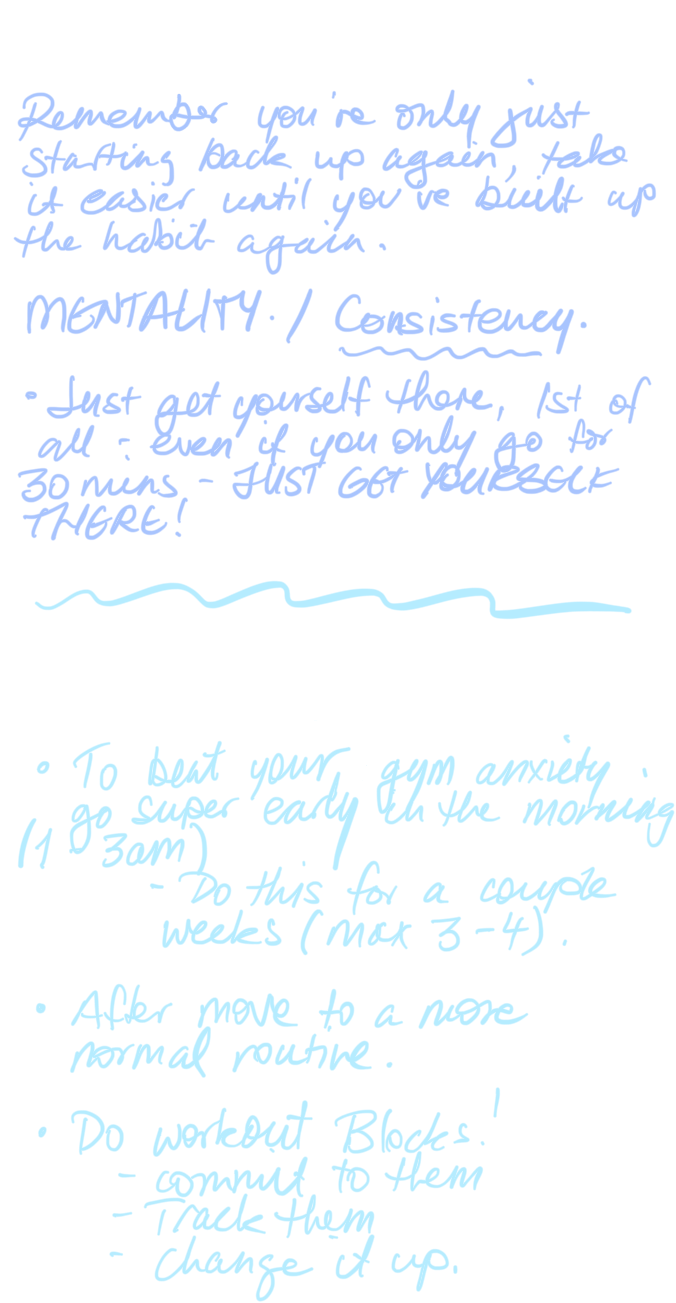 Remember you're only just
starting back up again, take
it easier until you've built up
the habit again.
MENTALITY. / Consistency.
• Just get yourself there, 1st of
all : even if you only go for
30 mins - JUST GET YOURSELF
THERE!
• To beat your gym anxiety
go super early in the morning
(1 - 3am)
- Do this for a couple
weeks (max 3-4).
• After move to a more
normal routine.
• Do workout Blocks!
- commit to them
- Track them
- change it up.